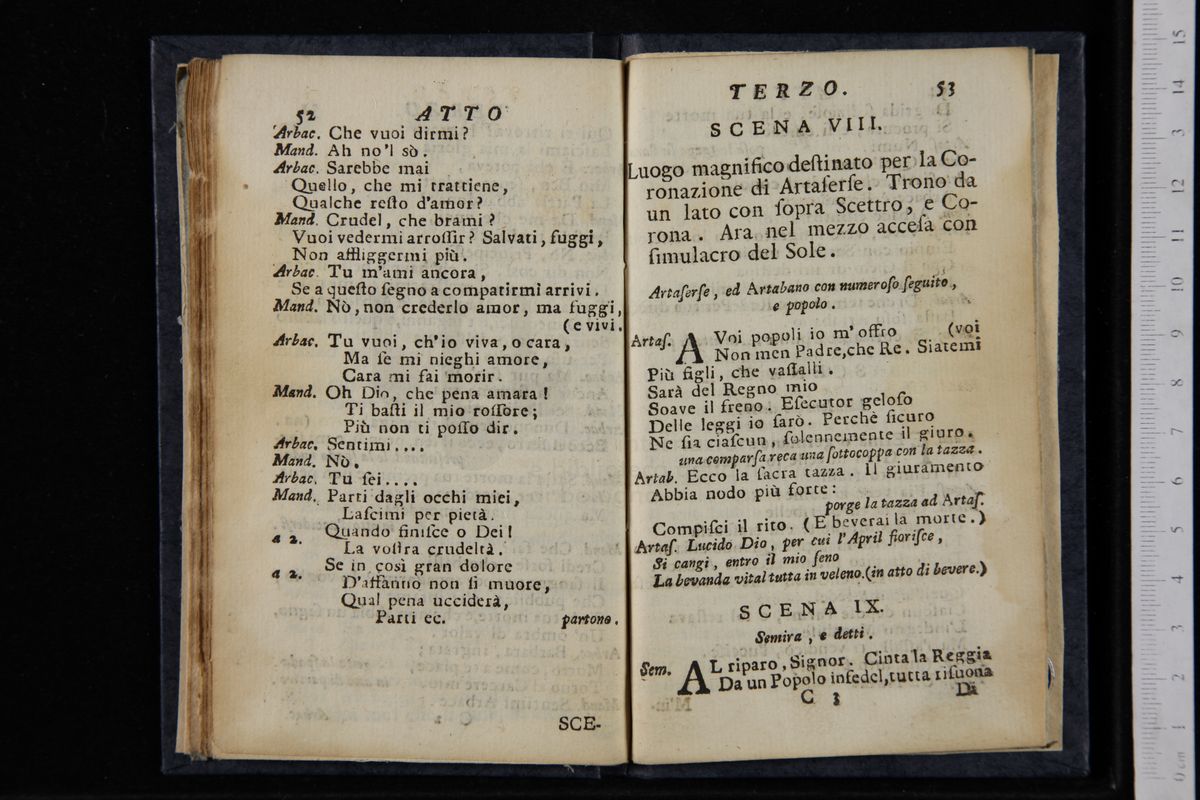 52 ATTO
Arbac. Che vuoi dirmi?
Mand. Ah no'l sò.
Arbac. Sarebbe mai
Quello, che mi trattiene,
Qualche reſto d'amor?
Mand. Crudel, che brami?
Vuoi vedermi arroſſir? Salvati, fuggi,
Non affliggermi più.
Arbac. Tu m'ami ancora,
Se a queſto ſegno a compatirmi arrivi.
Mand. Nò, non crederlo amor, ma fuggi,
(e vivi.
Arbac. Tu vuoi, ch'io viva, o cara,
Ma ſe mi nieghi amore,
Cara mi fai morir.
Mand. Oh Dio, che pena amara!
Ti baſti il mio roſſore;
Più non ti poſſo dir.
Arbac. Sentimi....
Mand. Nò.
Arbac. Tu ſei....
Mand. Parti dagli occhi miei,
Laſcimi per pietà.
Quando finiſce o Dei!
a 2.
La voſtra crudeltà.
Se in così gran dolore
a 2.
D'affanno non ſi muore,
Qual pena ucciderà,
Parti ec. partono.
SCE-
TERZO. 53
SCENA VIII.
Luogo magnifico deſtinato per la Co-
ronazione di Artaſerſe. Trono da
un lato con ſopra Scettro, e Co-
rona. Ara nel mezzo acceſa con
ſimulacro del Sole.
Artaſerſe, ed Artabano con numeroſo ſeguito,
e popolo.
Artaſ. A Voi popoli io m'offro (voi
Non men Padre, che Re. Siatemi
Più figli, che vaſſalli.
Sarà del Regno mio
Soave il freno. Eſecutor geloſo
Delle leggi io ſarò. Perchè ſicuro
Ne ſia ciaſcun, ſolennemente il giuro.
una comparſa reca una ſottocoppa con la tazza.
Artab. Ecco la ſacra tazza. Il giuramento
Abbia nodo più forte:
porge la tazza ad Artaſ.
Compiſci il rito. (E beverai la morte.)
Artaſ. Lucido Dio, per cui l'April fioriſce,
Si cangi, entro il mio ſeno
La bevanda vital tutta in veleno. (in atto di bevere.)
SCENA IX.
Semira, e detti.
Sem. AL riparo, Signor. Cinta la Reggia
Da un Popolo infedel, tutta riſuona
C 3 Di
0 cm 1 2 3 4 5 6 7 8 9 10 11 12 13 14 15